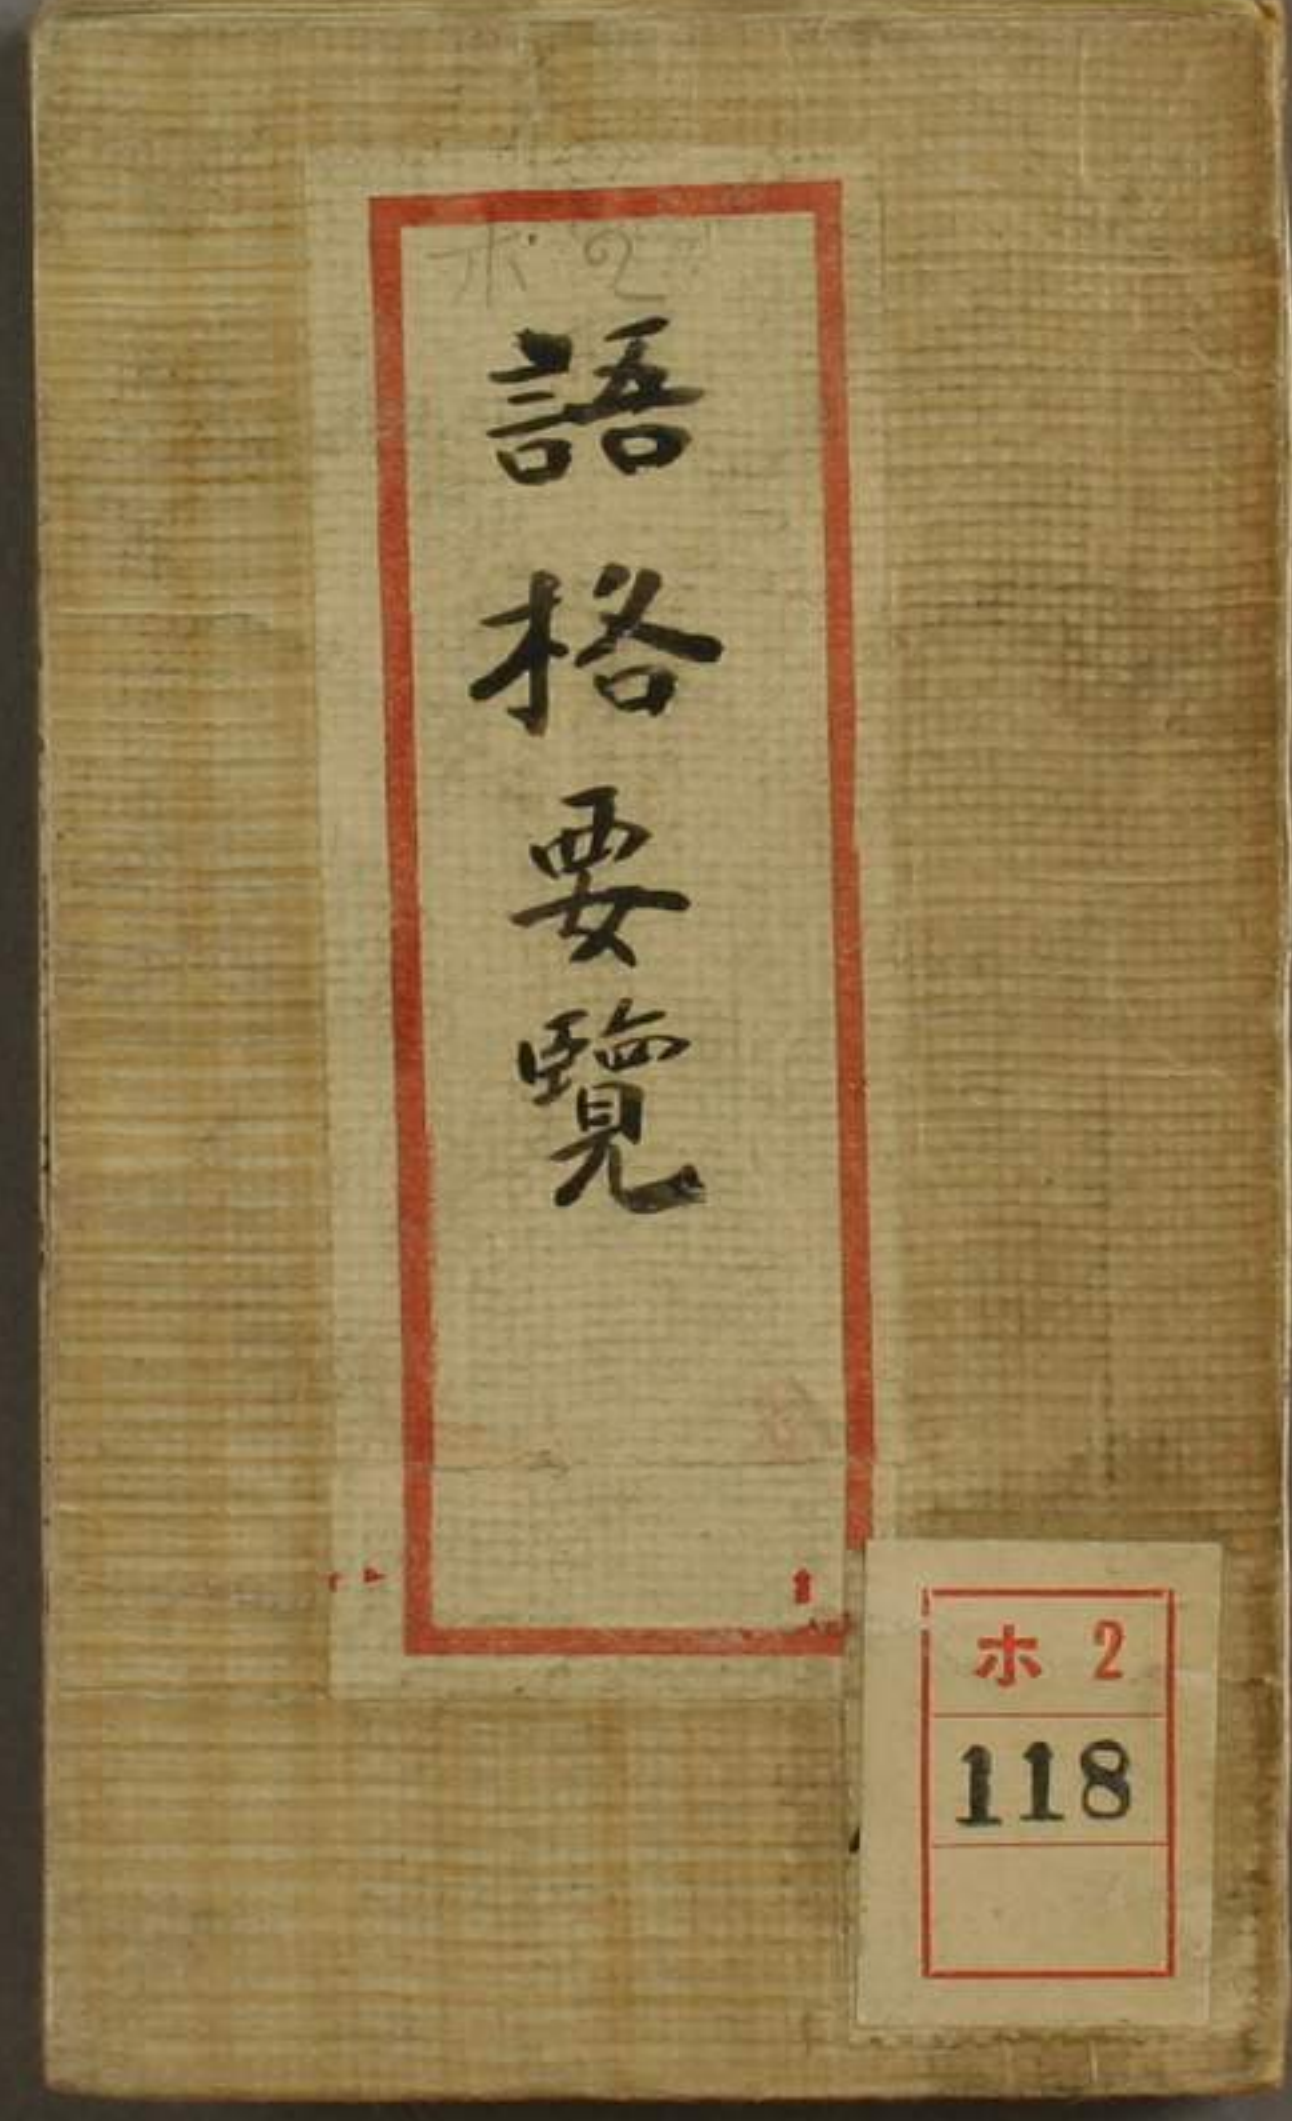 ホ 2
語格要覽
ホ 2
118